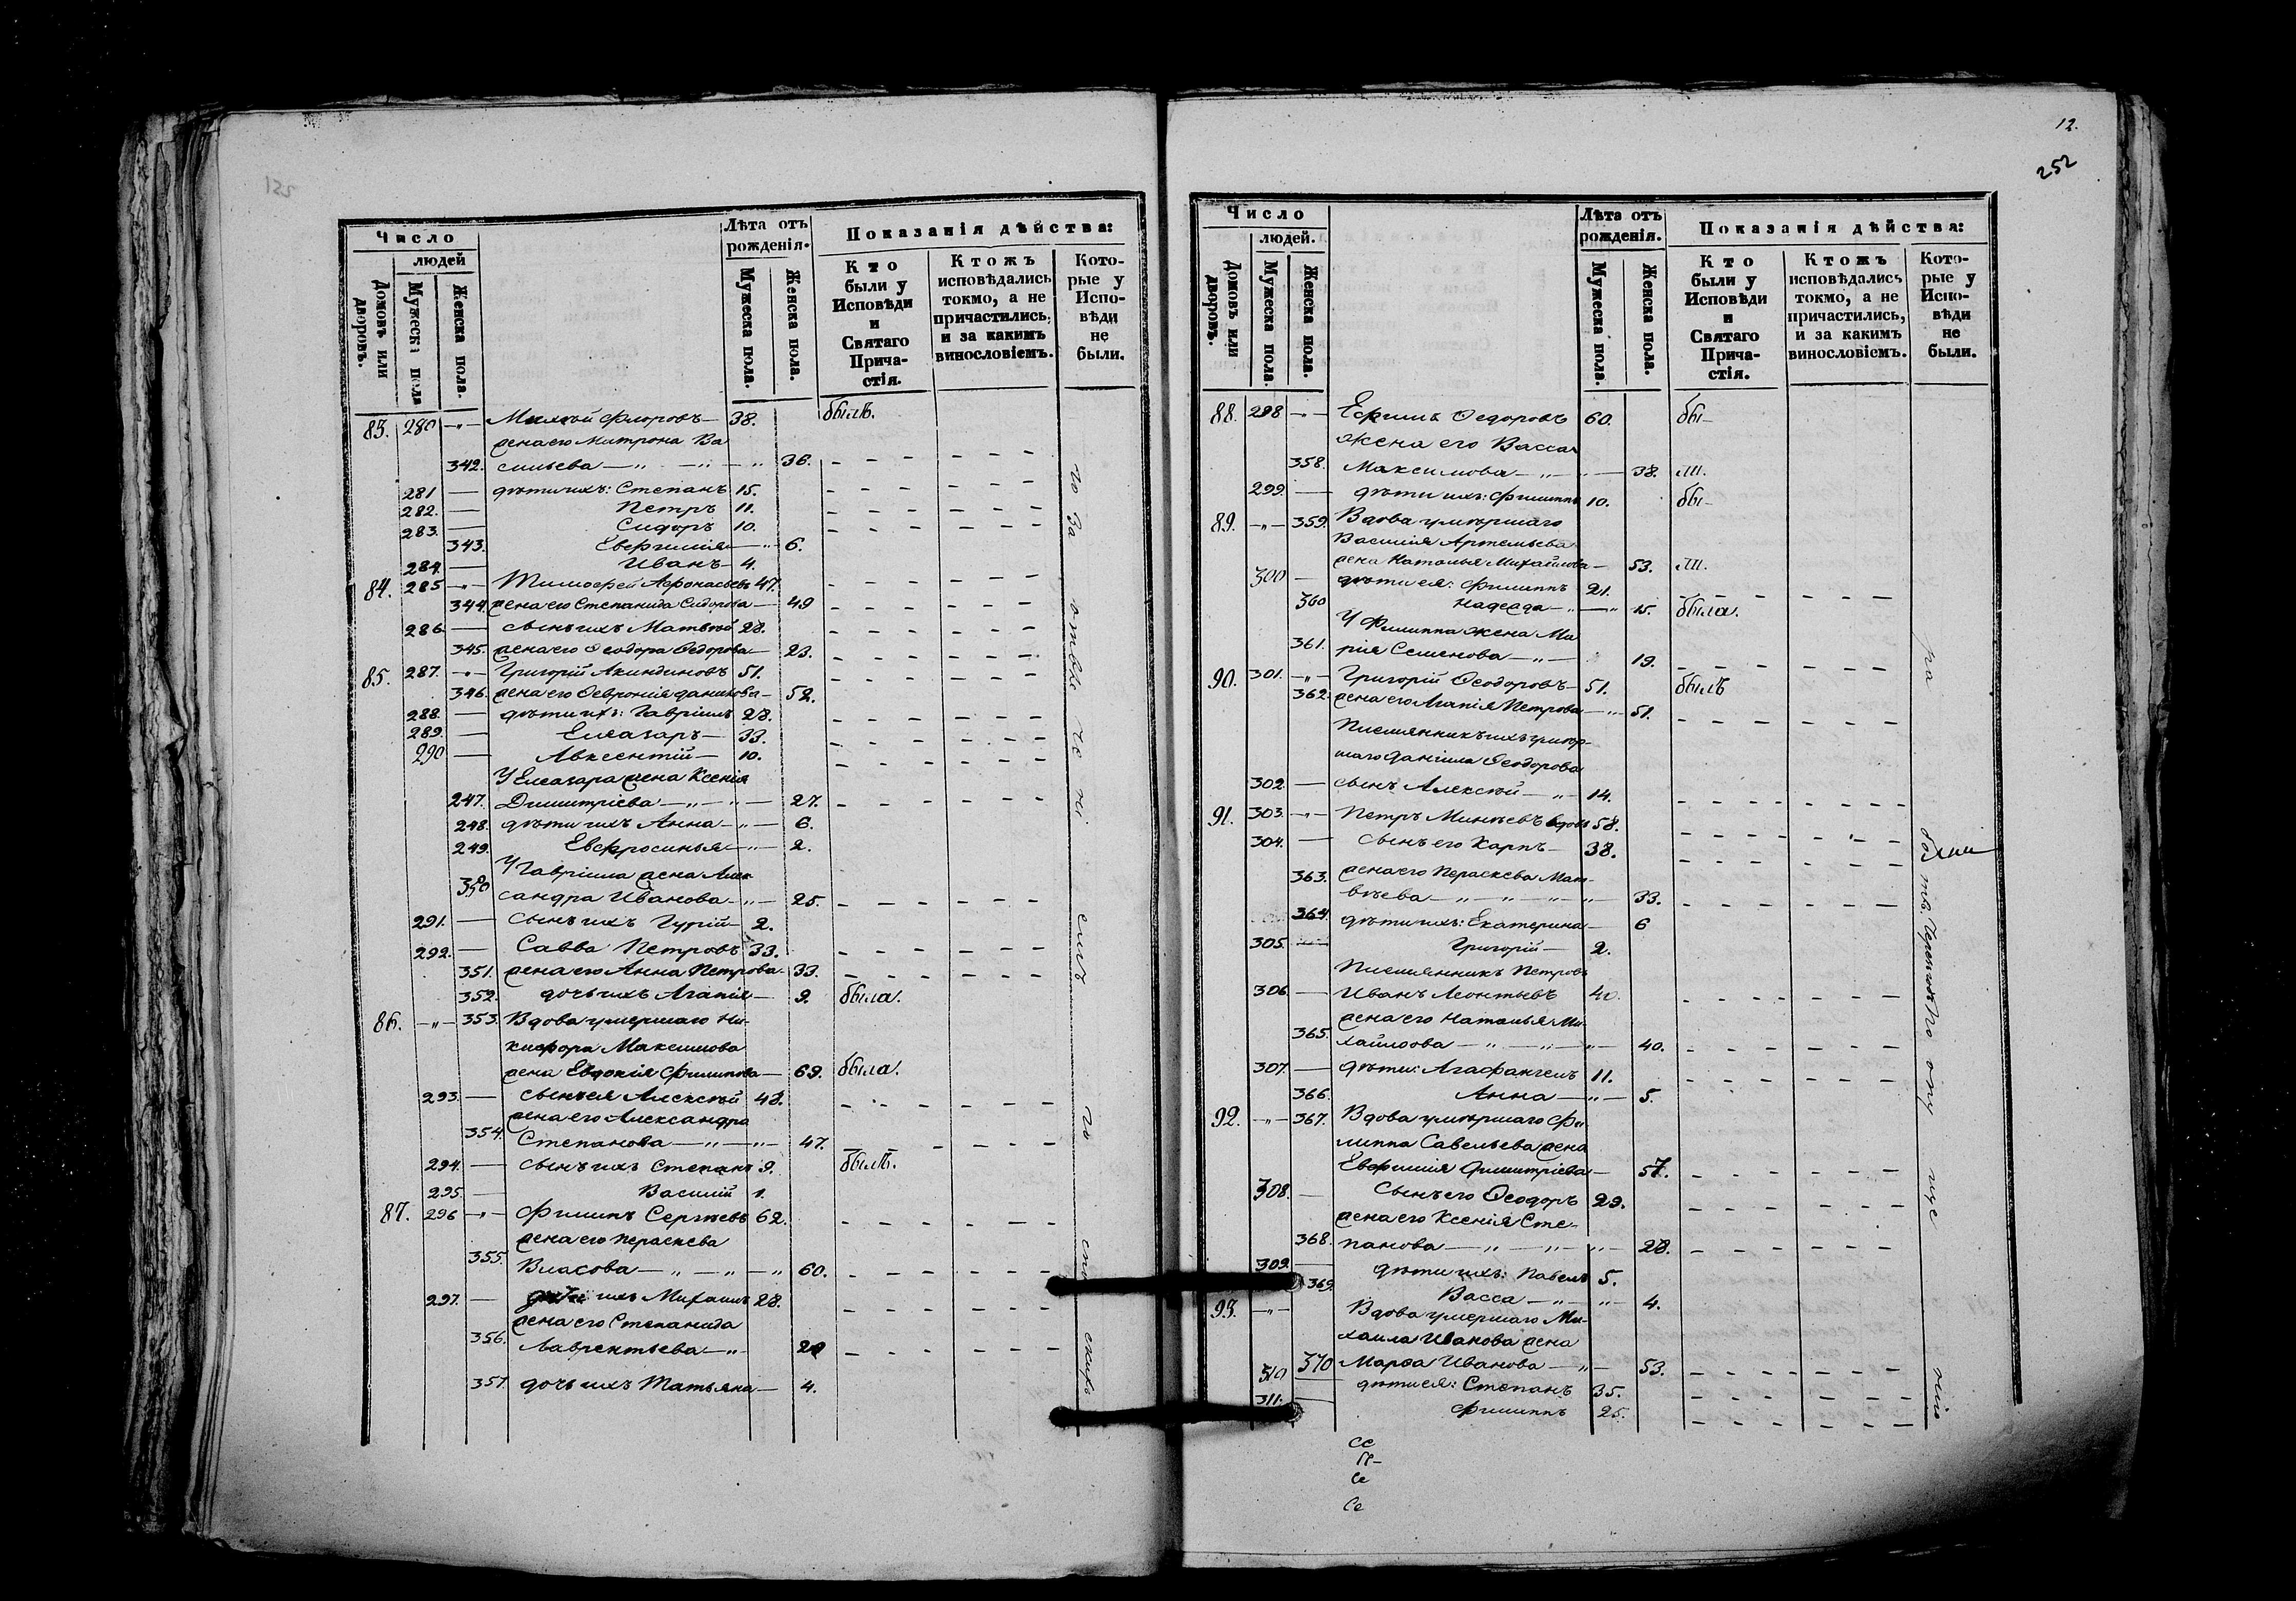 135
Число
людей
Домовъ или дворовъ.
Мужеска пола
Женска пола.
Лѣта отъ рожденія.
Мужеска пола.
Женска пола.
Показанія дѣйства:
Кто были у Исповѣди и Святаго Причастія.
Ктожъ исповѣдались токмо, а не причастились, и за какимъ винословіемъ.
Которые у Исповѣди не были.
83. 280 —„— Флоровъ — 38. былъ.
жена его Матрона Ва
342. сильева —„— —„— „ 36.
281 — дѣти ихъ: Степанъ 15.
282. — Петръ 11.
283. — Сидоръ 10.
343. Евфимія —„— 6.
284. — Иванъ — 4.
84. 285 —„— Тимофей Афонасьевъ 47.
344. жена его Степанида Сидорова — 49
286 — сынъ ихъ Матвѣй 28.
345. жена его Ѳеодора Ѳедорова — 23.
85. 287. —„— Григорій Акиндиновъ 51.
346. жена его Ѳевронія Данилова — 52.
288. — дѣти ихъ: Гавріилъ 28.
289. — Елеазаръ — 33.
290 — Авксентій — 10.
У Елеазара жена Ксенія
247. Димитріева —„— „ — 27.
248. дѣти ихъ Анна —„— 6.
249. Евфросинья —„— 2.
У Гавріила жена Алек
350 сандра Иванова —„— 25.
291. — сынъ ихъ Гурій — 2.
292. — Савва Петровъ 33.
351. жена его Анна Петрова — 33.
352. дочь ихъ Агапія — 9. была.
86. —„— 353. Вдова умершаго Ни-
кифора Максимова
жена Евдокія Филипова — 69. была.
293. — сынъ ея Алексѣй 48.
жена его Александра
354. Степанова —„— —„— 47.
294. — сынъ ихъ Степанъ 9. былъ.
295. — Василій 1.
87. 296 —„— Филипъ Сергѣевъ 62.
жена его Параскева
355. Власова —„— „ — „ 60.
297. — ихъ Михаилъ 28.
жена его Степанида
356. Лаврентьева —„—
357. дочь ихъ Татьяна — 4.
12.
252
Число
людей.
Домовъ или дворовъ.
Мужеска пола.
Женска пола.
Лѣта отъ рожденія.
Мужеска пола.
Женска пола.
Показанія дѣйства:
Кто были у Исповѣди и Святаго Причастія.
Ктожъ исповѣдались токмо, а не причастились, и за какимъ винословіемъ.
Которые у Исповѣди не были.
88. 298 —„— Ефимъ Ѳедоровъ 60. бы-
жена его Васса
358. Максимова —„— — 38. ли.
299. — дѣти ихъ: Филиппъ 10. бы-
89. —„— 359. Вдова умершаго
Василія Артемьева
жена Наталья Михайлова — 53. ли.
300 — дѣти ея: Филиппъ 21.
360 Надежда —„— „ 15. была.
У Филиппа жена Ма
361. рія Семенова —„— 19.
90. 301. —„— Григорій Ѳеодоровъ — 51. былъ
362. жена его Агапія Петрова —„— 51.
Племянникъ ихъ умер-
шаго Даніила Ѳеодорова
302. — сынъ Алексѣй —„— 14.
91. 303. —„— Петръ Минѣевъ вдовъ 58.
304. — сынъ его Карпъ — 38.
363. жена его Параскева Мат-
вѣева —„— „ — „ — 33.
364. дѣти ихъ: Екатерина — 6
305. — Григорій — 2.
Племянникъ Петровъ
306. — Иванъ Леонтьевъ 40.
жена его Наталья Ми-
365. хайлова —„— „ — 40.
307. — дѣти: Агафангелъ 11.
366. Анна —„— 5.
92. —„— 367. Вдова умершаго Фи
липпа Савельева жена
Евфимія Димитріева — 57.
308. — сынъ его Ѳеодоръ 29.
жена его Ксенія Сте-
368. панова —„— „ — „ 28.
309. — дѣти ихъ: Павелъ 5.
369. Васса —„— „ 4.
93. —„— Вдова умершаго Ми-
хаила Иванова жена
370 Марѳа Иванова —„— 53.
310 дѣти ея: Степанъ 35.
311. — Филиппъ 25.